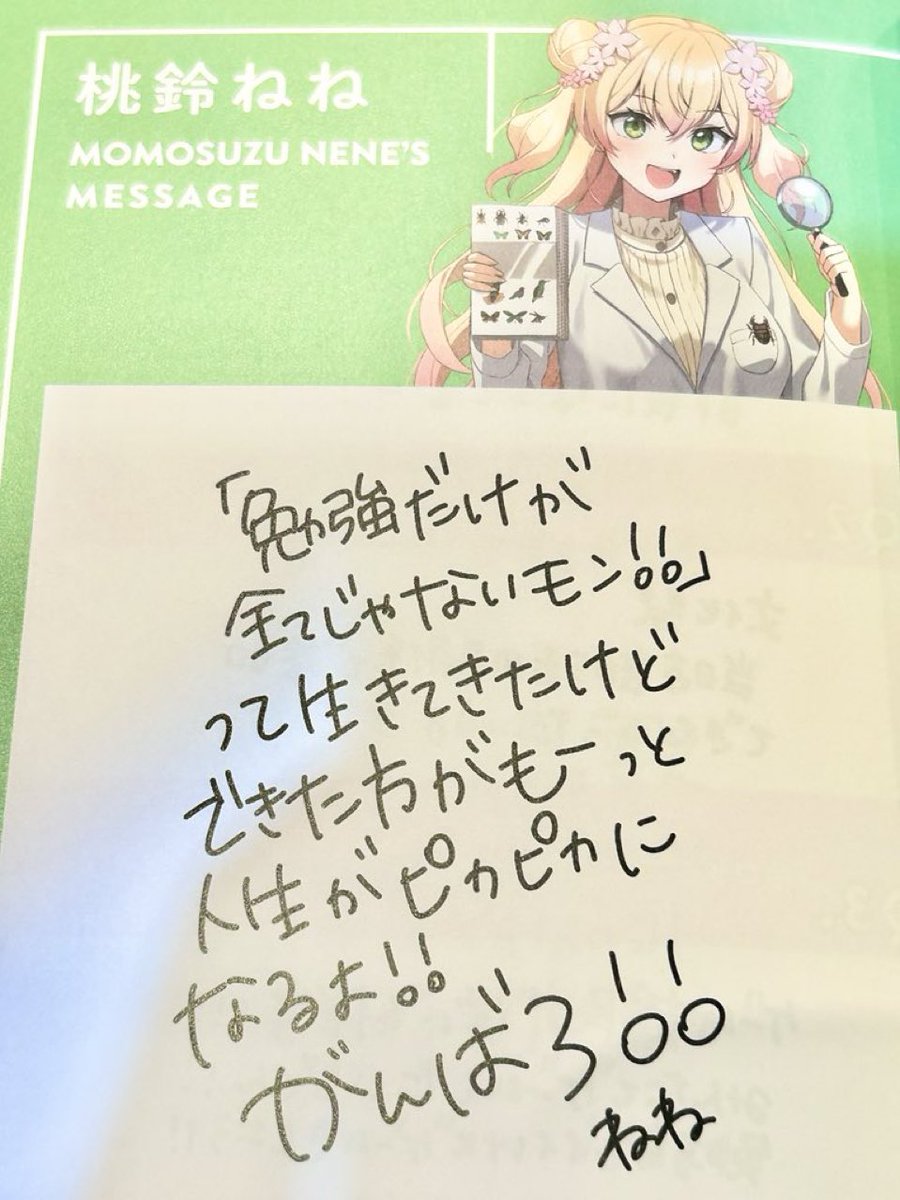 桃鈴ねね
MOMOSUZU NENE'S
MESSAGE
「勉強だけが
全てじゃないモン!!」
って生きてきたけど
できた方がもーっと
人生がピカピカに
なるよ!!
がんばろ!!
ねね